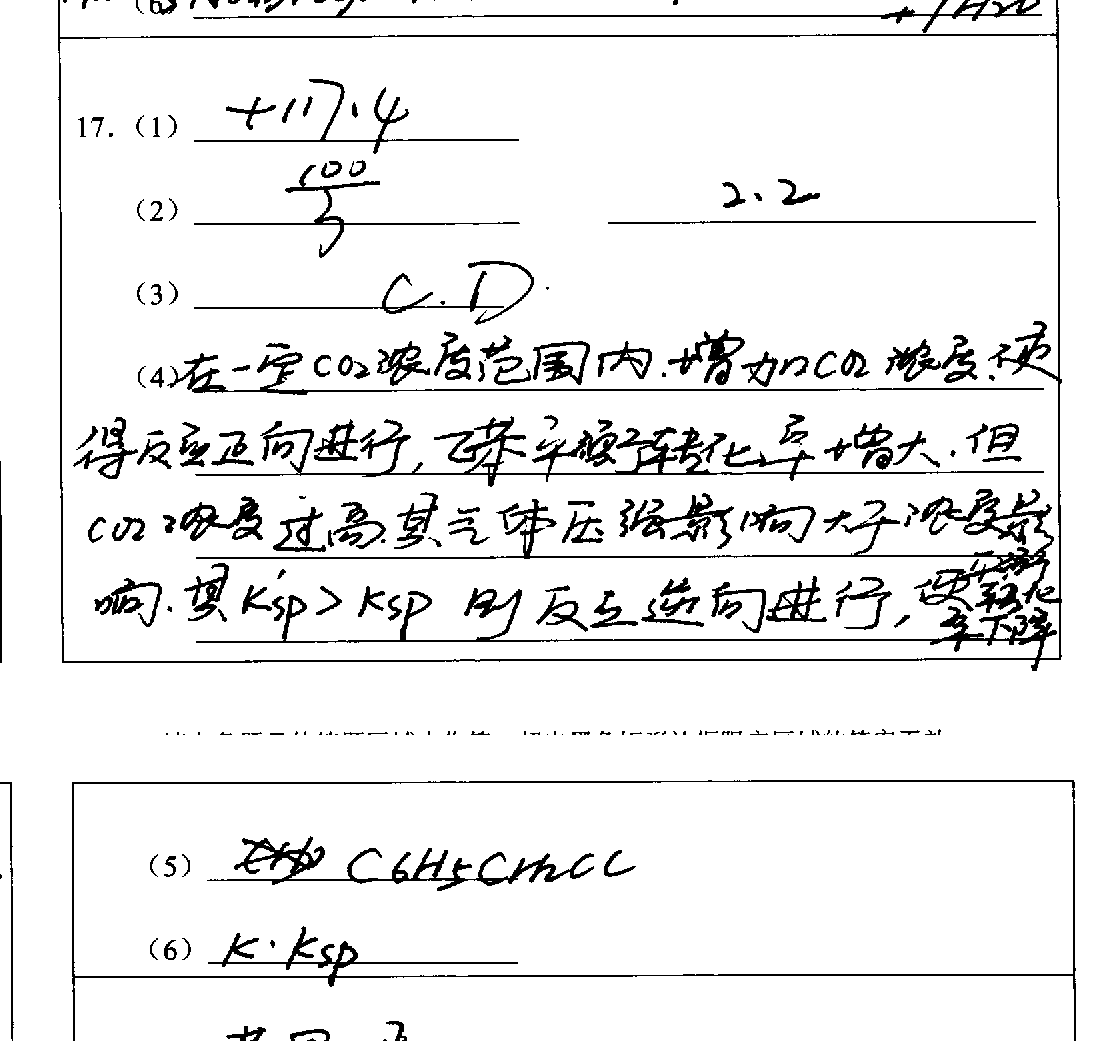 17. (1) +117.4
(2) 100/3 2.2
(3) C.D.
(4) 在一定CO2浓度范围内.增加CO2浓度.使
得反应正向进行, 乙苯平衡转化率增大.但
CO2浓度过高.其气体压强影响大于浓度影
响.其K'sp>Ksp 则反应逆向进行, 使平衡转化率下降
(5) C6H5CH2Cl
(6) K·Ksp